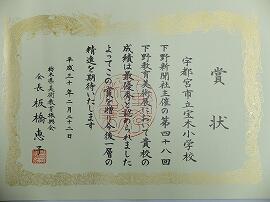 賞状
宇都宮市立宝木小学校
下野新聞社主催の第四十八回
下野教育美術展において貴校の
成績は最優秀と認められました
よってこの賞を贈り今後一層の
精進を期待いたします
平成三十年二月二十二日
栃木県美術教育振興会
会長 板橋恵子